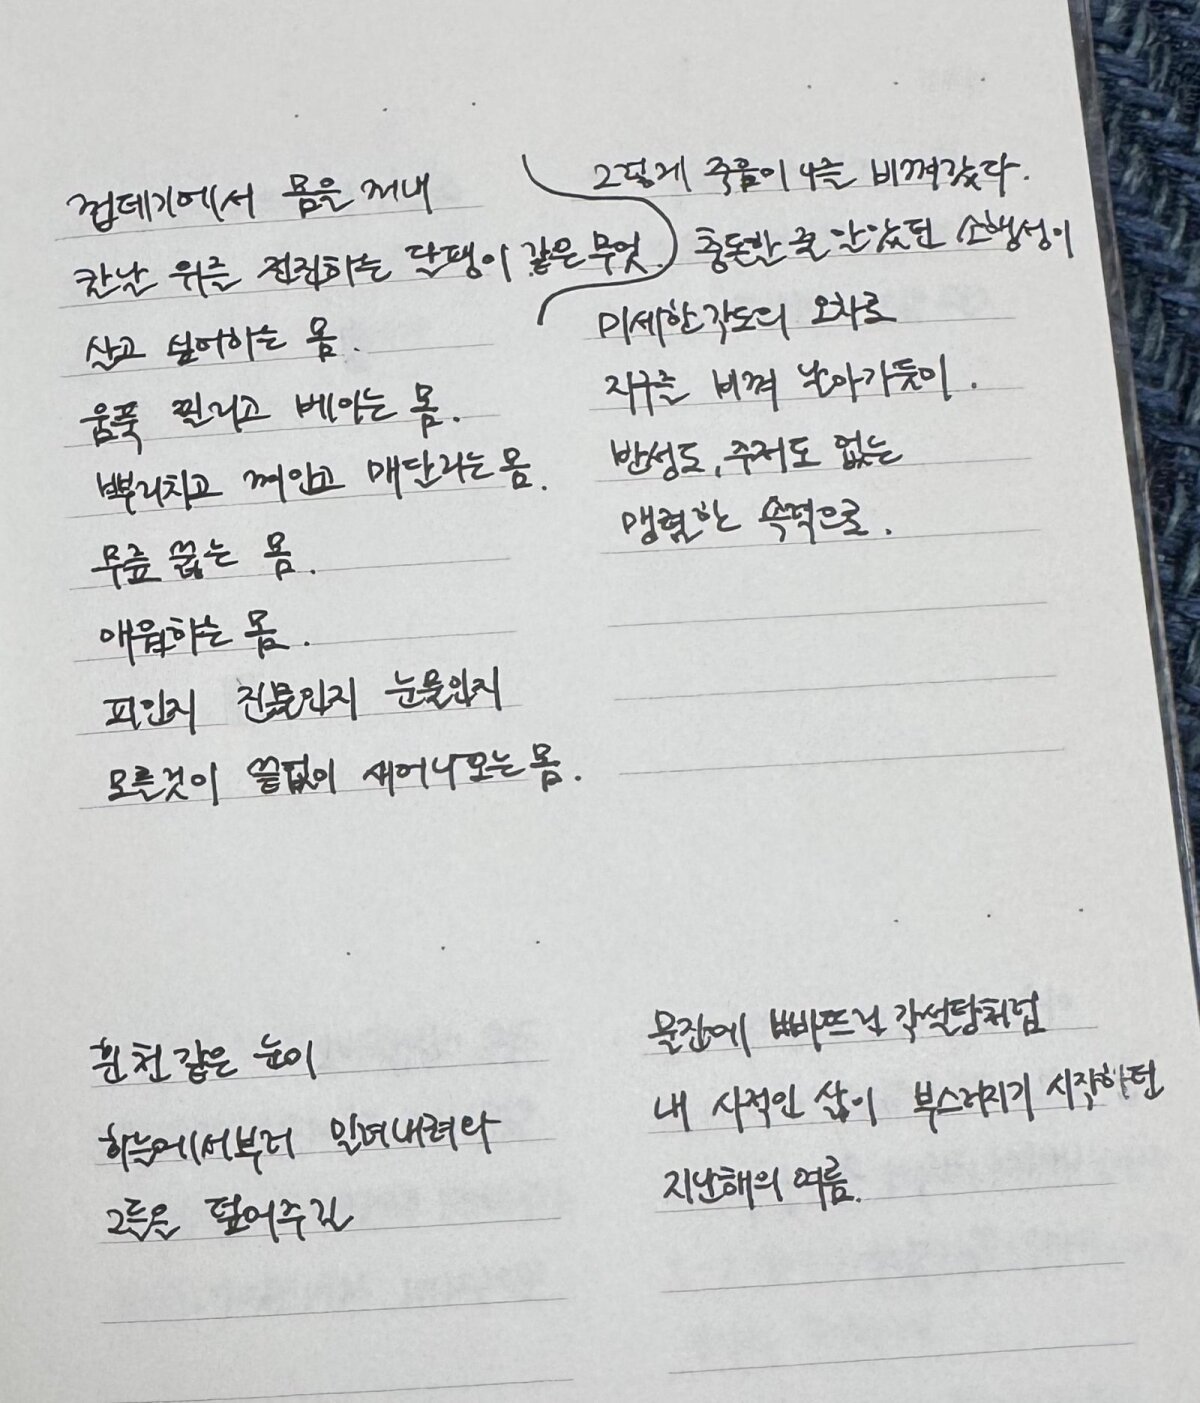 껍데기에서 몸을 꺼내
칼날 위를 전진하는 달팽이 같은 무엇.
살고 싶어하는 몸.
움푹 찔리고 베이는 몸.
뿌리치고 껴안고 매달리는 몸.
무릎 꿇는 몸.
애원하는 몸.
피인지 진물인지 눈물인지
모를것이 끝없이 새어나오는 몸.
그렇게 죽음이 나를 비껴갔다.
충돌한 줄 알았던 소행성이
미세한 각도의 오차로
지구를 비껴 날아가듯이.
반성도, 주저도 없는
맹렬한 속력으로.
흰 천 같은 눈이
하늘에서부터 밀려내려와
그들을 덮어주길
물잔에 빠뜨린 각설탕처럼
내 사적인 삶이 부스러지기 시작하던
지난해의 여름.